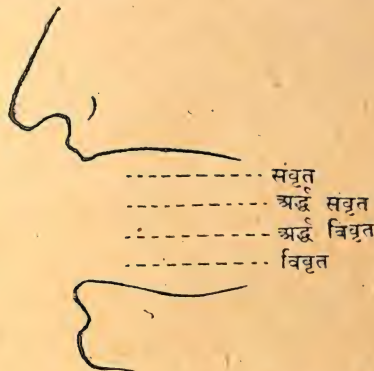 संवृत
अर्द्ध संवृत
अर्द्ध विवृत
विवृत